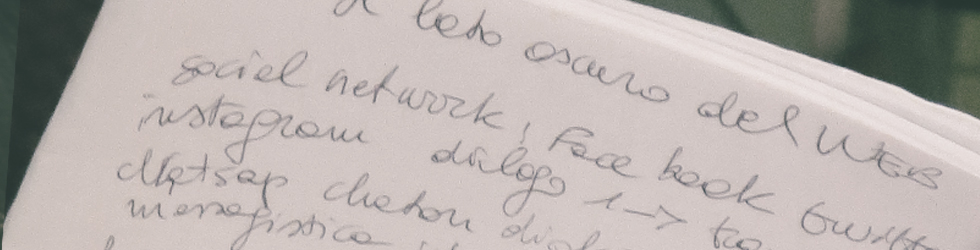 lato oscuro del WEB
social network, Face book twitt
instagram dialogo 1-> to
Whatsap chatau dial
messagistica